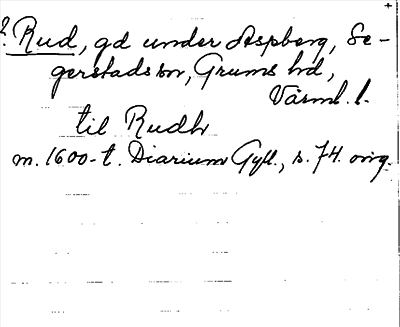 ? Rud, gd under Aspberg, Se-
gerstads sn, Grums hd,
Värml. l.
til Rudh
m. 1600-t. Diarium Gyll., s. 74. orig.